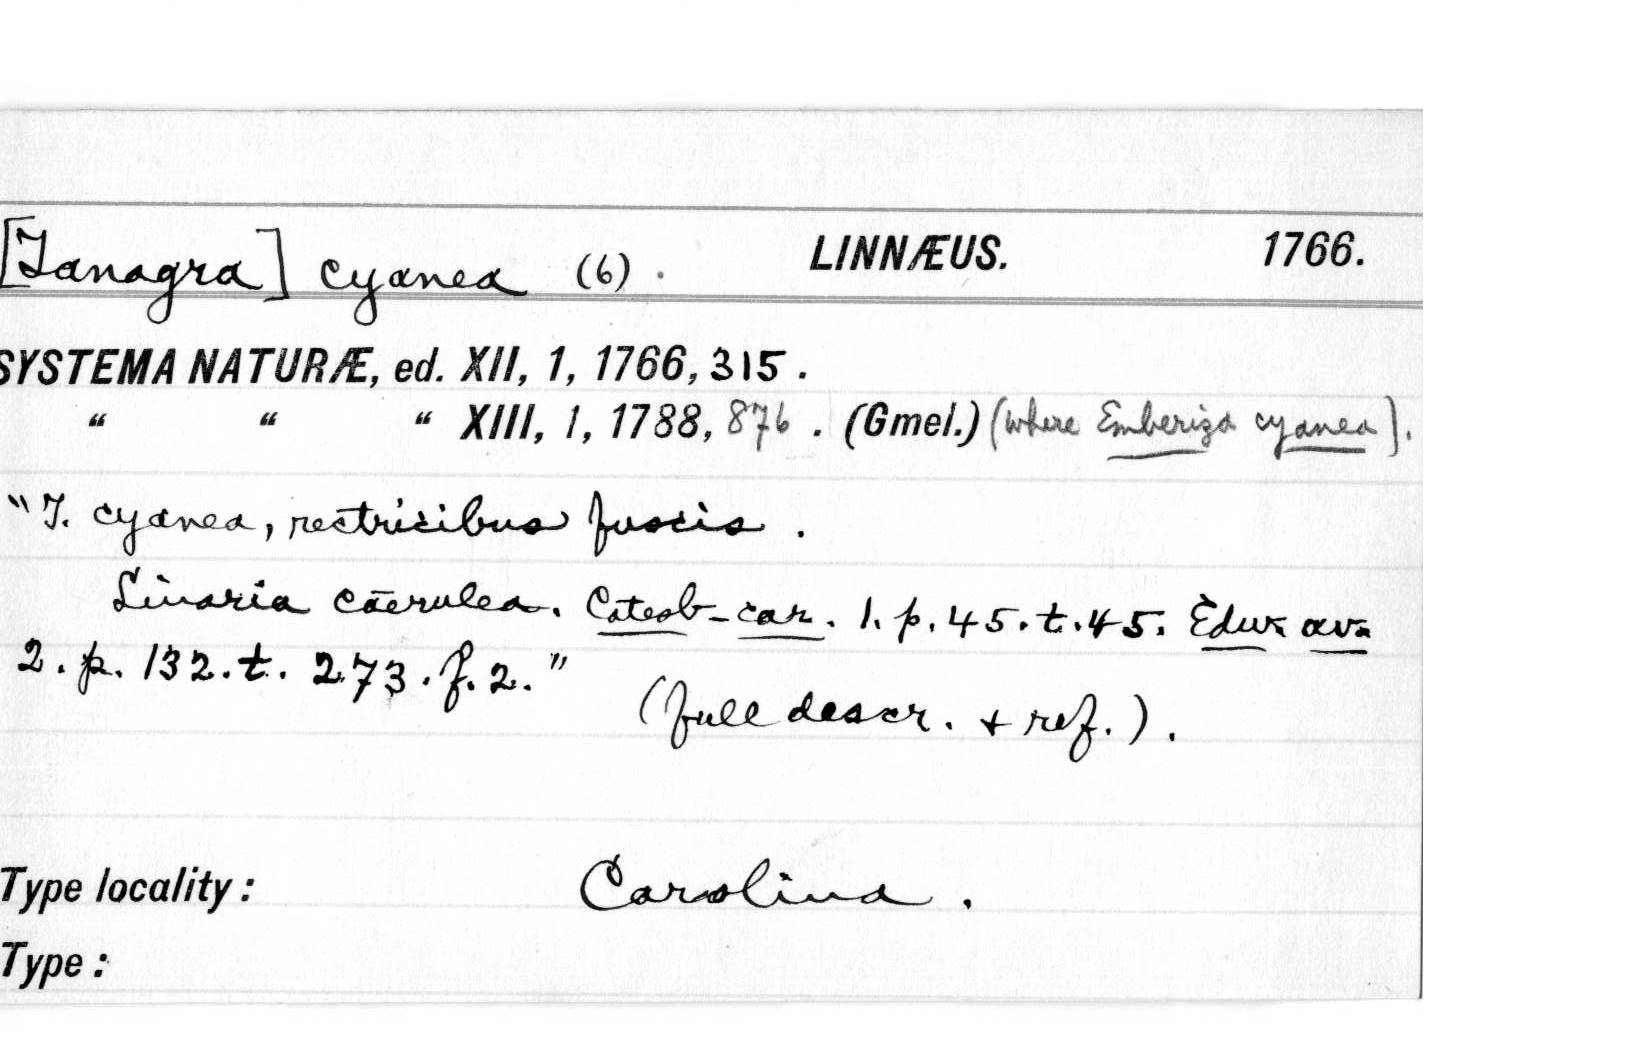 [Tanagra] cyanea (6). LINNÆUS. 1766.
SYSTEMA NATURÆ, ed. XII, 1, 1766, 315.
“ “ “ XIII, 1, 1788, 876. (Gmel.) (where Emberiza cyanea).
"T. cyanea, rectricibus fuscis.
Linaria cæerulea. Catesb-car. 1. p. 45. t. 45. Edw. av.
2. p. 132. t. 273. f. 2."
(full descr. + ref.).
Type locality: Carolina.
Type: